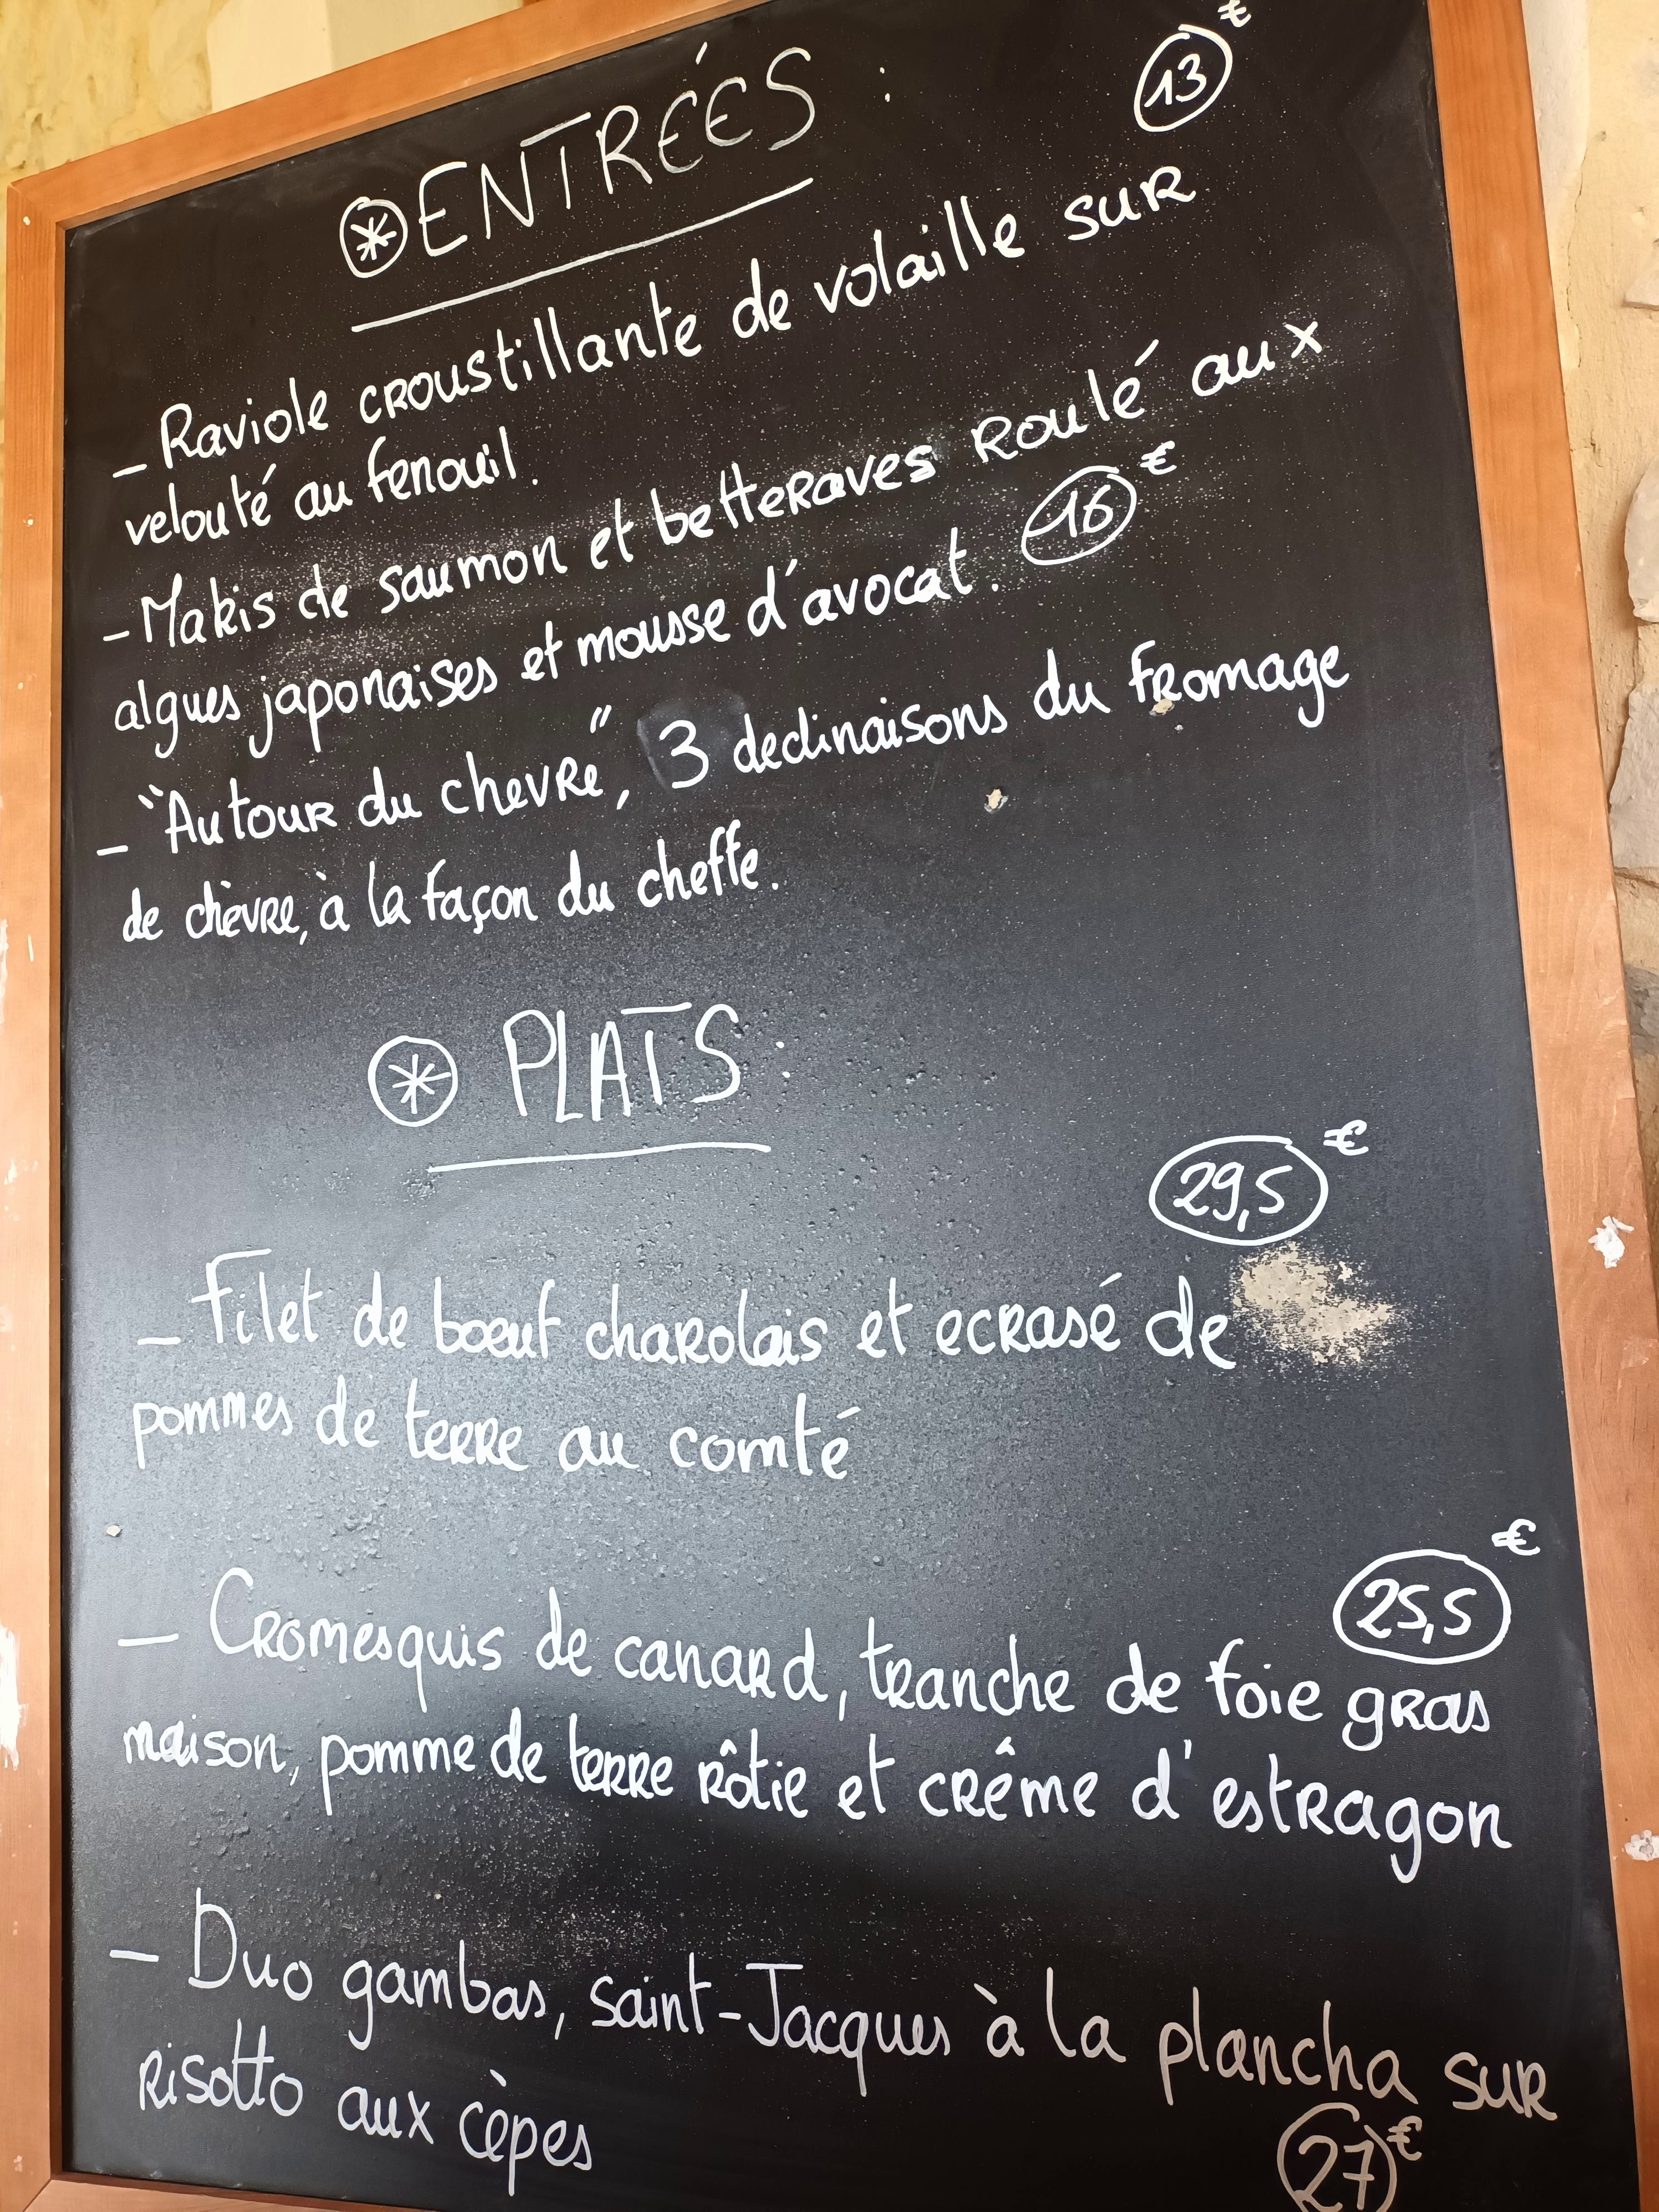 ENTRÉES :
13 €
- Raviole croustillante de volaille sur
velouté au fenouil.
- Makis de saumon et betteraves roulé aux
algues japonaises et mousse d'avocat. 16 €
- "Autour du chevre", 3 declinaisons du fromage
de chèvre, à la façon du cheffe.
PLATS :
29,5 €
- Filet de bœuf charolais et ecrasé de
pommes de terre au comté
25,5 €
- Cromesquis de canard, tranche de foie gras
maison, pomme de terre rôtie et crême d'estragon
- Duo gambas, Saint-Jacques à la plancha sur
risotto aux cèpes
27 €